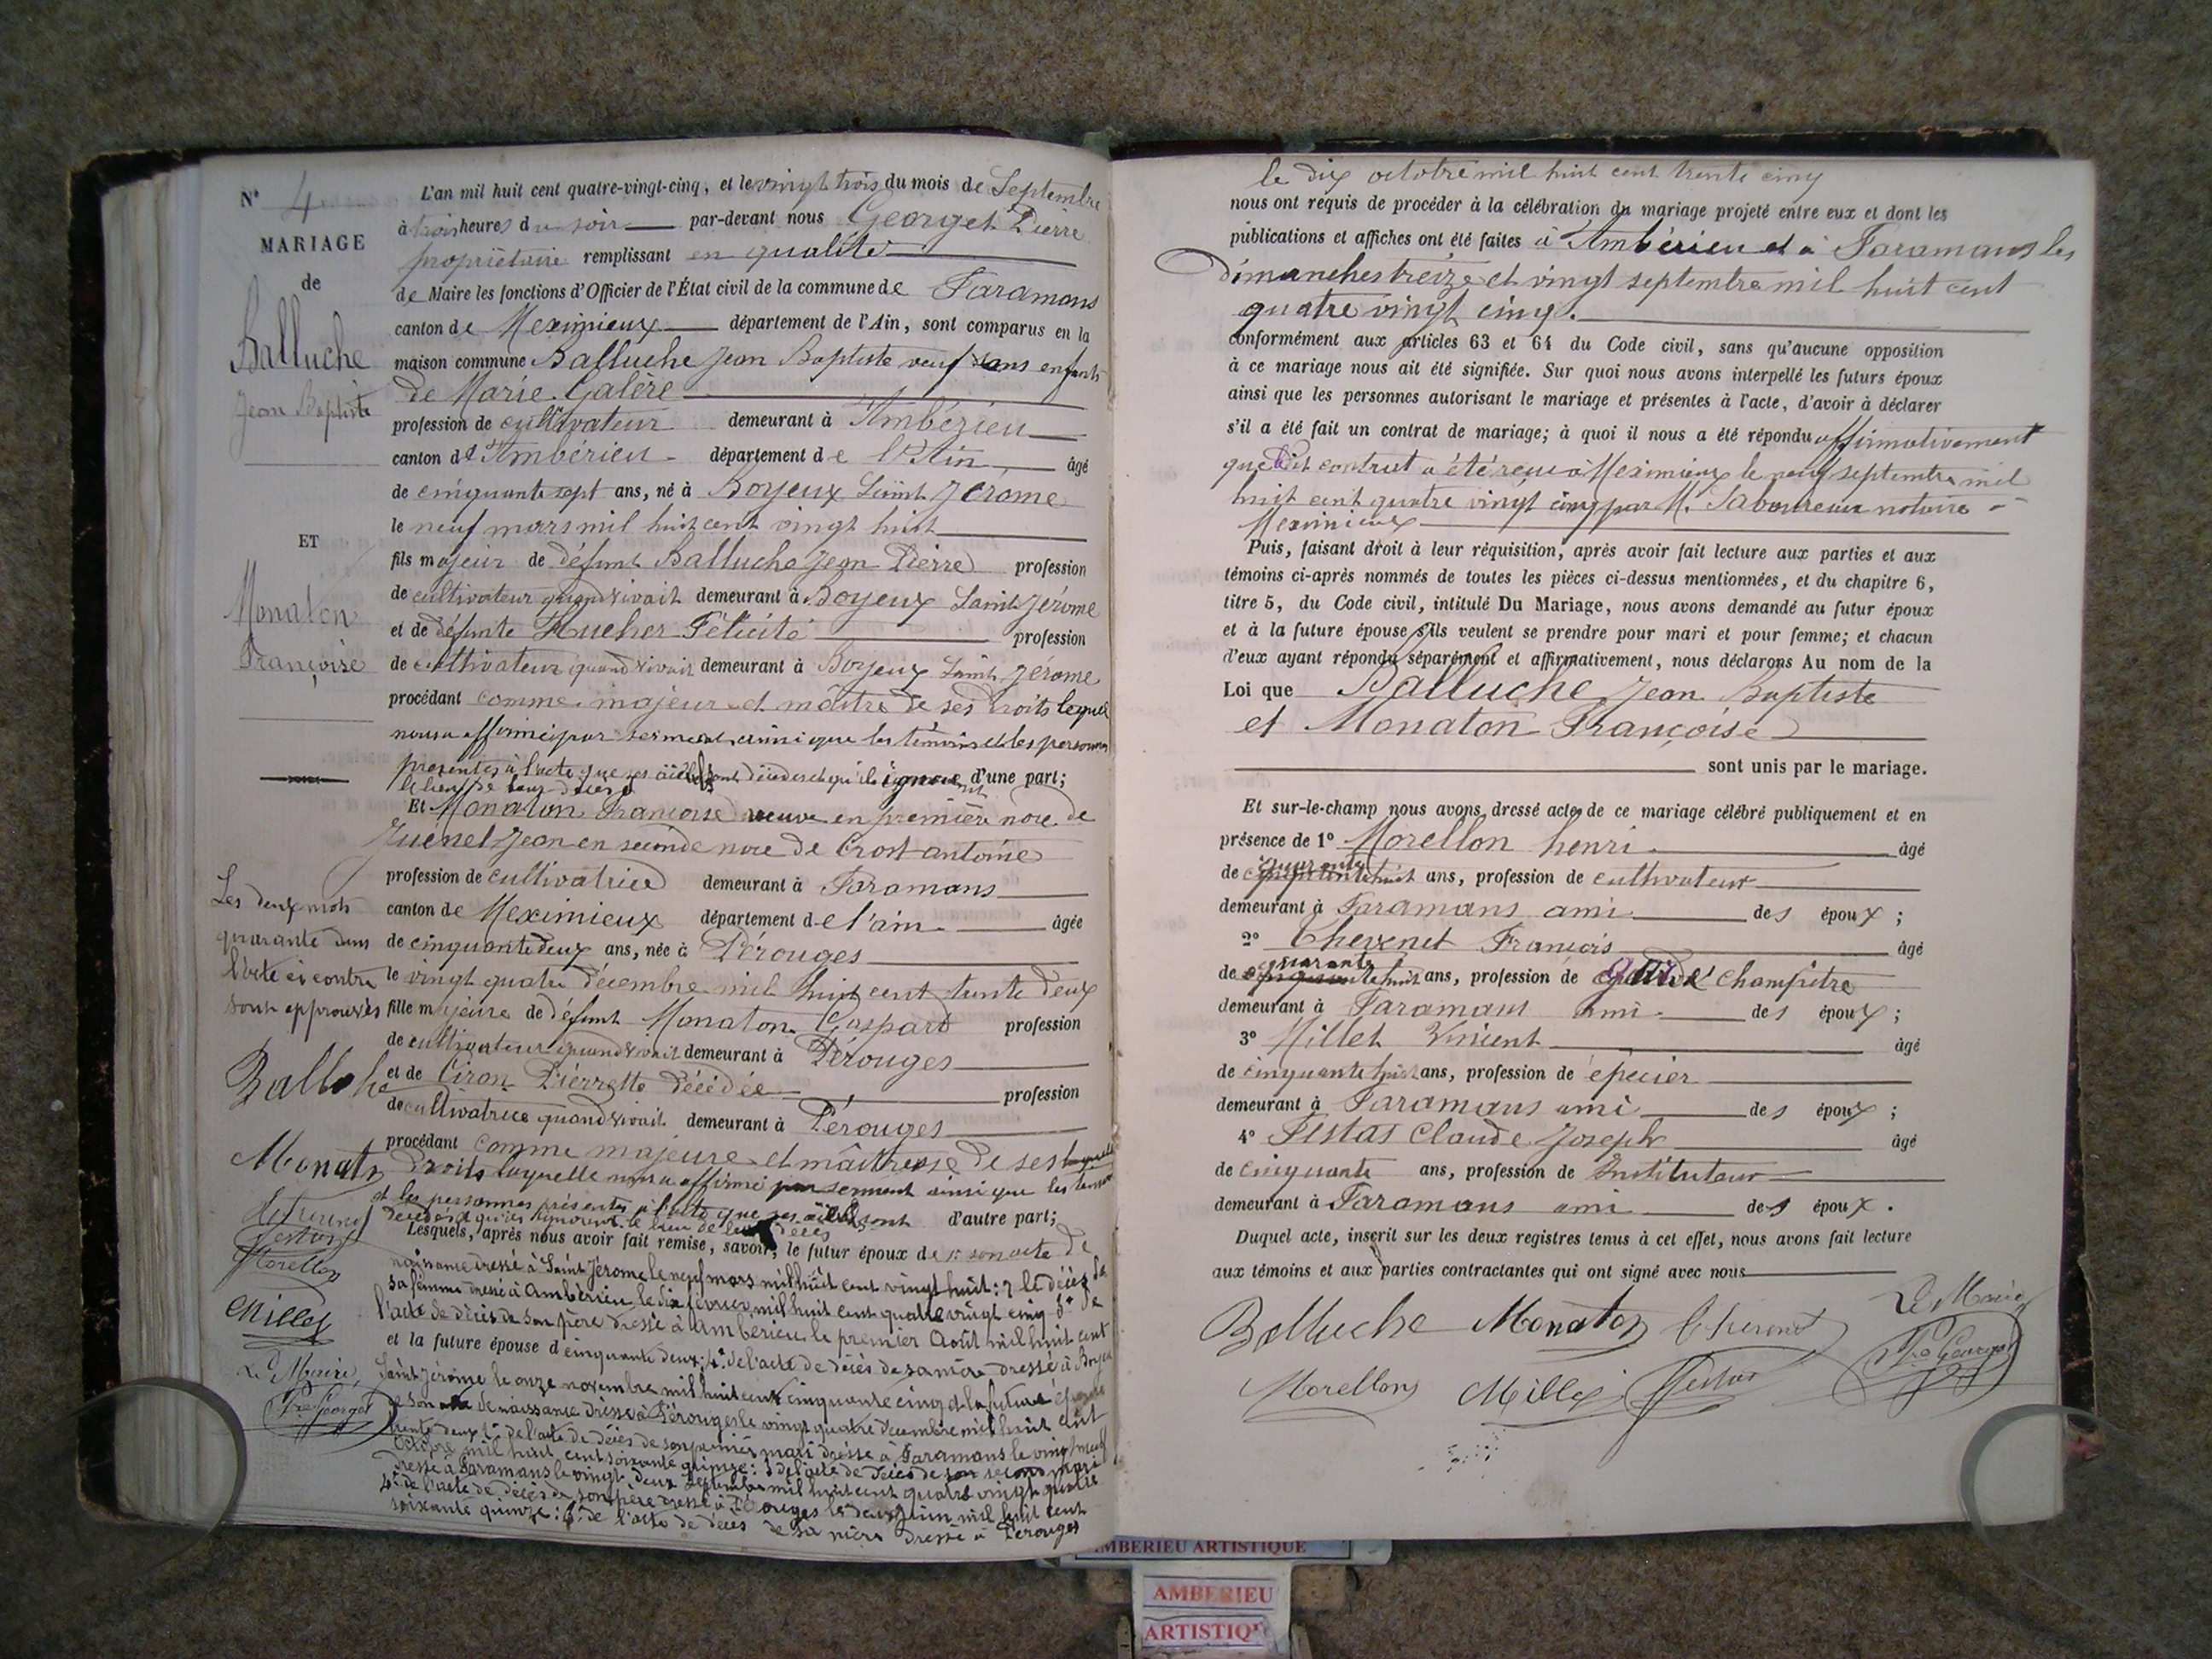 N° 4
MARIAGE
de
Balluche
Jean Baptiste
ET
Monaton
Françoise
Les deux mots
quarante dans
l'acte ci contre
sont approuvés
Balluche
Monaton
Pestas
Morellon
Millet
Le Maire,
Pre Georget
L'an mil huit cent quatre-vingt-cinq, et le vingt trois du mois de Septembre
à trois heures du soir par-devant nous Georget Pierre
propriétaire remplissant en qualité
de Maire les fonctions d'Officier de l'État civil de la commune de Faramans
canton de Meximieux département de l'Ain, sont comparus en la
maison commune Balluche Jean Baptiste veuf sans enfants
de Marie Galère
profession de cultivateur demeurant à Ambérieu
canton d'Ambérieu département de l'Ain âgé
de cinquante sept ans, né à Boyeux Saint Jérome
le neuf mars mil huit cent vingt huit
fils majeur de défunt Balluche Jean Pierre profession
de cultivateur quand vivait demeurant à Boyeux Saint Jérome
et de défunte Hucher Félicité profession
de cultivateur quand vivait demeurant à Boyeux Saint Jérome
procédant comme majeur et maître de ses droits lequel
nous a affirmé par serment ainsi que les témoins et les personnes
presentes à l'acte que ses aïeuls sont décédés et qu'ils ignorent d'une part;
le lieu de leur décès
Et Monaton Françoise veuve en première noce de
Juénet Jean en seconde noce de Crost antoine
profession de cultivatrice demeurant à Faramans
canton de Meximieux département de l'ain âgée
de cinquante deux ans, née à Pérouges
le vingt quatre décembre mil huit cent trente deux
fille majeure de défunt Monaton Gaspard profession
de cultivateur quand vivait demeurant à Pérouges
et de Ciron Pierrette décédée profession
de cultivatrice quand vivait demeurant à Pérouges
procédant comme majeure et maîtresse de ses
droits laquelle nous a affirmé par serment ainsi que les témoins
et les personnes présentes à l'acte que ses aïeuls sont d'autre part;
décédés et qu'ils ignorent le lieu de leur décès
Lesquels, après nous avoir fait remise, savoir, le futur époux de 1° son acte de
naissance dressé à Saint Jérome le neuf mars mil huit cent vingt huit: 2° le décès de
sa femme dressé à Ambérieu le dix février mil huit cent quatre vingt cinq 3° de
l'acte de décès de son père dressé à Ambérieu le premier Août mil huit cent
et la future épouse d cinquante deux; 4° de l'acte de décès de sa mère dressé à Boyeux
Saint Jérome le onze novembre mil huit cent cinquante cinq et la future épouse
de son acte de naissance dressé à Pérouges le vingt quatre décembre mil huit cent
trente deux 2° de l'acte de décès de son premier mari dressé à Faramans le vingt neuf
Octobre mil huit cent soixante quinze: 3° de l'acte de décès de son second mari
dressé à Faramans le vingt deux Septembre mil huit cent quatre vingt quatre
4° de l'acte de décès de son père dressé à Pérouges le deux juin mil huit cent
soixante quinze: 5° de l'acte de décès de sa mère dressé à Pérouges
le dix octobre mil huit cent trente cinq
nous ont requis de procéder à la célébration du mariage projeté entre eux et dont les
publications et affiches ont été faites à Ambérieu et à Faramans les
dimanches treize et vingt septembre mil huit cent
quatre vingt cinq.
conformément aux articles 63 et 64 du Code civil, sans qu'aucune opposition
à ce mariage nous ait été signifiée. Sur quoi nous avons interpellé les futurs époux
ainsi que les personnes autorisant le mariage et présentes à l'acte, d'avoir à déclarer
s'il a été fait un contrat de mariage; à quoi il nous a été répondu affirmativement
que ledit contrat a été reçu à Meximieux le neuf septembre mil
huit cent quatre vingt cinq par M. Saboureux notaire à
Meximieux
Puis, faisant droit à leur réquisition, après avoir fait lecture aux parties et aux
témoins ci-après nommés de toutes les pièces ci-dessus mentionnées, et du chapitre 6,
titre 5, du Code civil, intitulé Du Mariage, nous avons demandé au futur époux
et à la future épouse s'ils veulent se prendre pour mari et pour femme; et chacun
d'eux ayant répondu séparément et affirmativement, nous déclarons Au nom de la
Loi que Balluche Jean Baptiste
et Monaton Françoise
sont unis par le mariage.
Et sur-le-champ nous avons dressé acte de ce mariage célébré publiquement et en
présence de 1° Morellon henri âgé
de quarante huit ans, profession de cultivateur
demeurant à Faramans ami des époux;
2° Chevenet François âgé
de quarante huit ans, profession de garde champêtre
demeurant à Faramans ami des époux;
3° Millet Vincent âgé
de cinquante huit ans, profession de épicier
demeurant à Faramans ami des époux;
4° Pestas Claude Joseph âgé
de cinquante ans, profession de Instituteur
demeurant à Faramans ami des époux.
Duquel acte, inscrit sur les deux registres tenus à cet effet, nous avons fait lecture
aux témoins et aux parties contractantes qui ont signé avec nous
Le Maire
Balluche Monaton Chevenet
Pre Georget
Morellon Millet Pestas
AMBERIEU ARTISTIQUE
AMBERIEU
ARTISTIQU